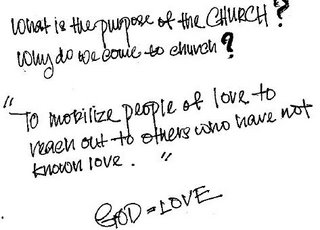 What is the purpose of the CHURCH?
Why do we come to church?
"To mobilize people of love to
reach out to others who have not
known love. "
GOD = LOVE